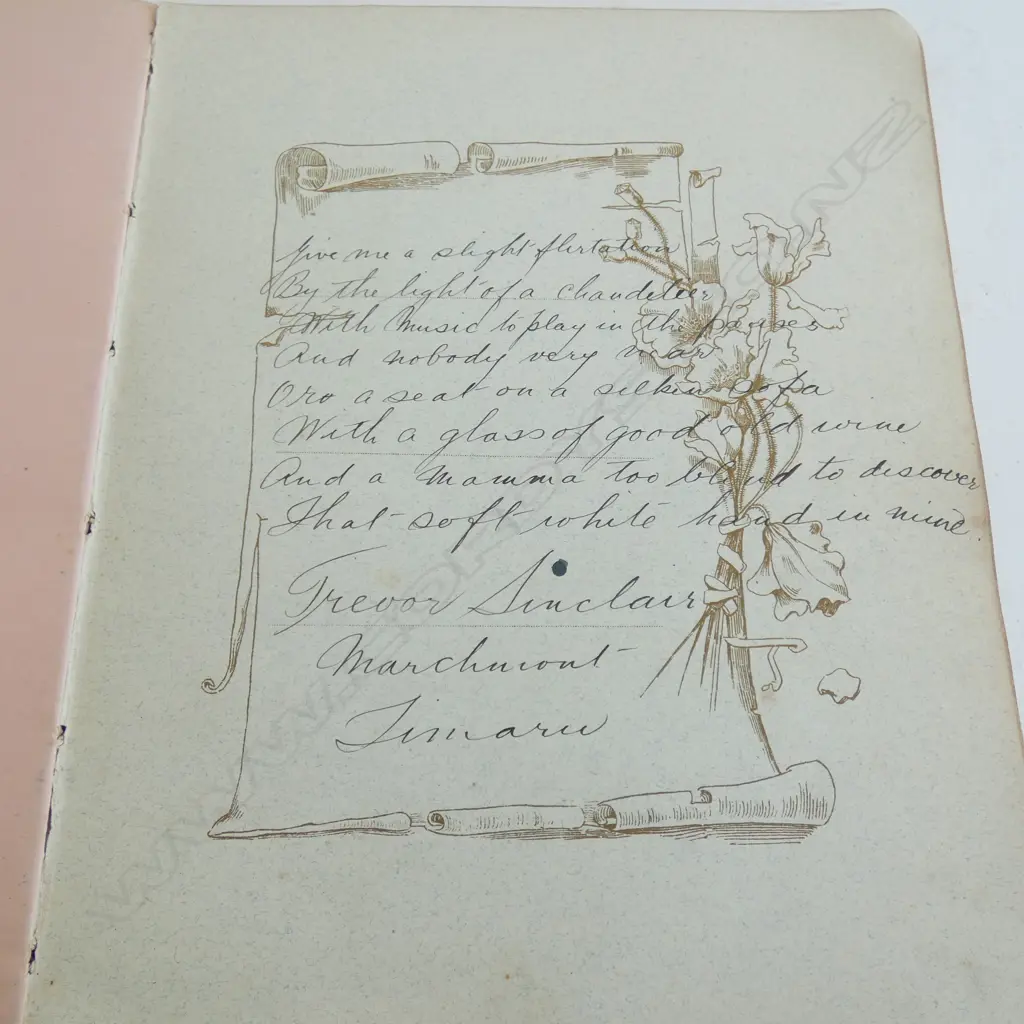 Give me a slight flirtation
By the light of a chandelier
With Music to play in the pauses
And nobody very near
Oro a seat on a silken sofa
With a glass of good old wine
And a Mamma too blind to discover
That soft white hand in mine
Trevor Sinclair
Marchmont
Timaru